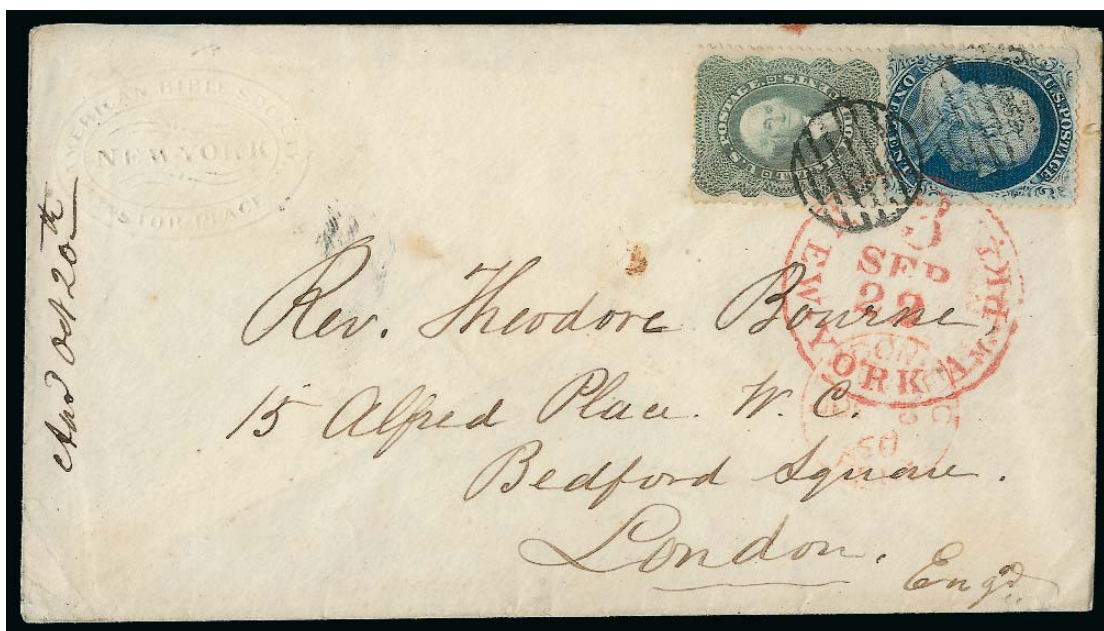 AMERICAN BIBLE SOCIETY
NEW-YORK
ASTOR PLACE
U.S. POSTAGE
U.S. POSTAGE
ONE CENT
NEW YORK AM. PKT.
3
SEP
29
LONDON
60
Rev. Theodore Bourne,
15 Alfred Place. W. C.
Bedford Square.
London.
Engd.
Oct 20th